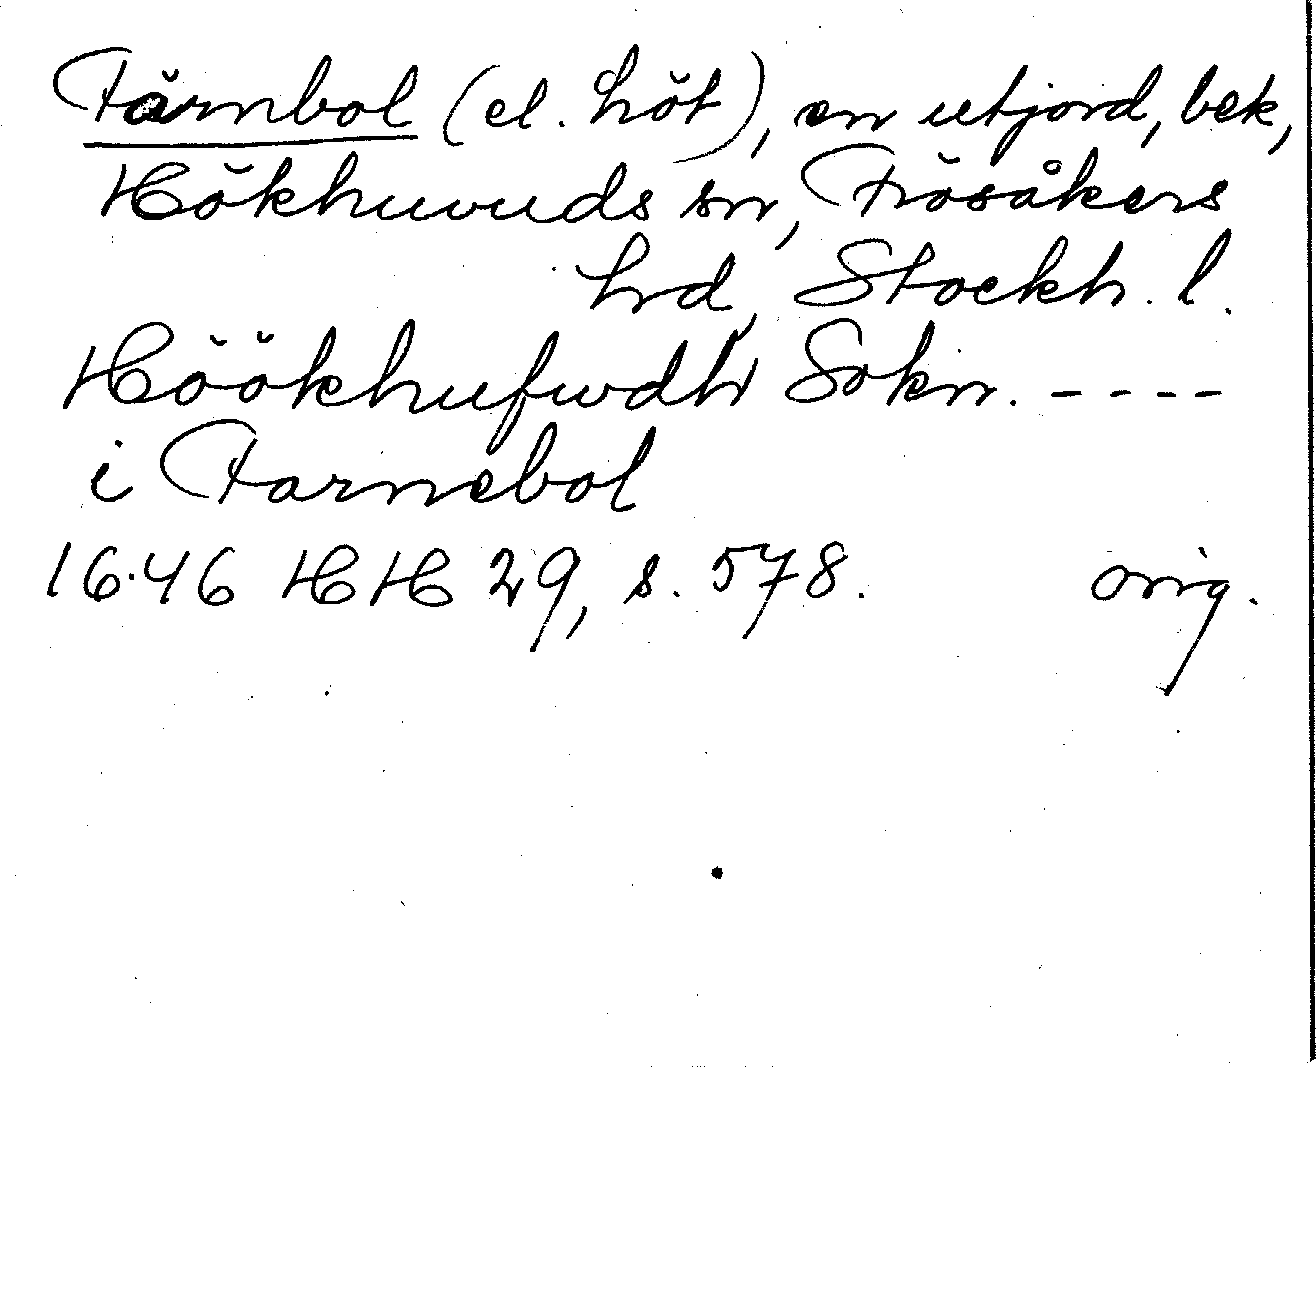 Färnbol (el. höt), en utjord, bek,
Hökhuvuds sn, Frösåkers
hrd, Stockh. l.
Höökhufwdh Sokn. - - - -
i Farnebol
1646 HH 29, s. 578. orig.